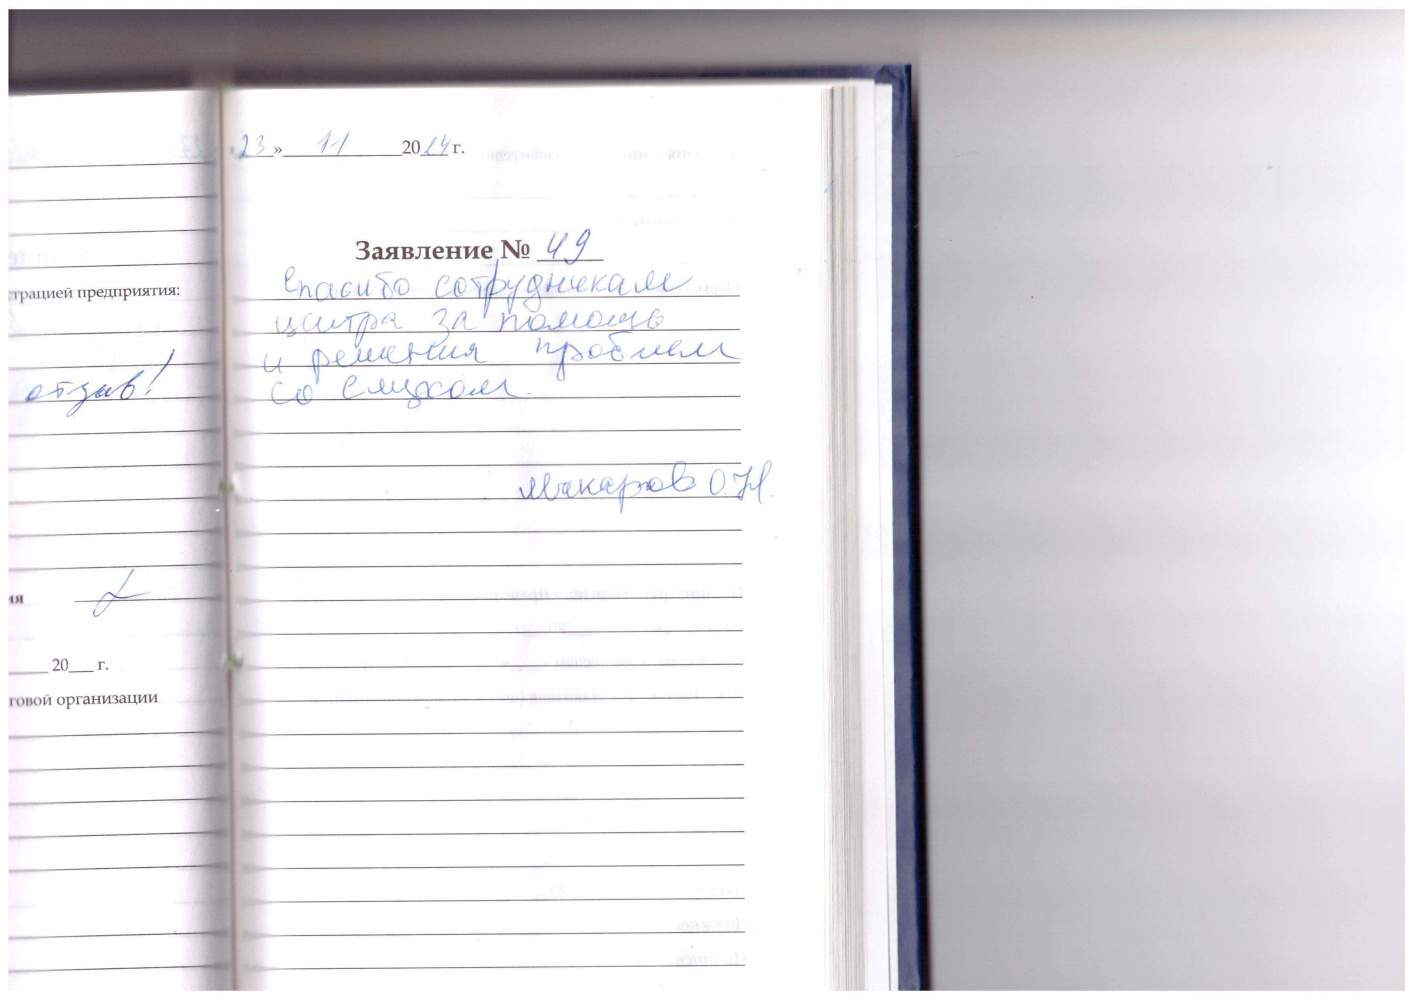 трацией предприятия:
отзыв!
ия
20 г.
говой организации
23 » 11 2024 г.
Заявление № 49
Спасибо сотрудникам
центра за помощь
и решения проблем
со слухом.
Макаров О.Н.